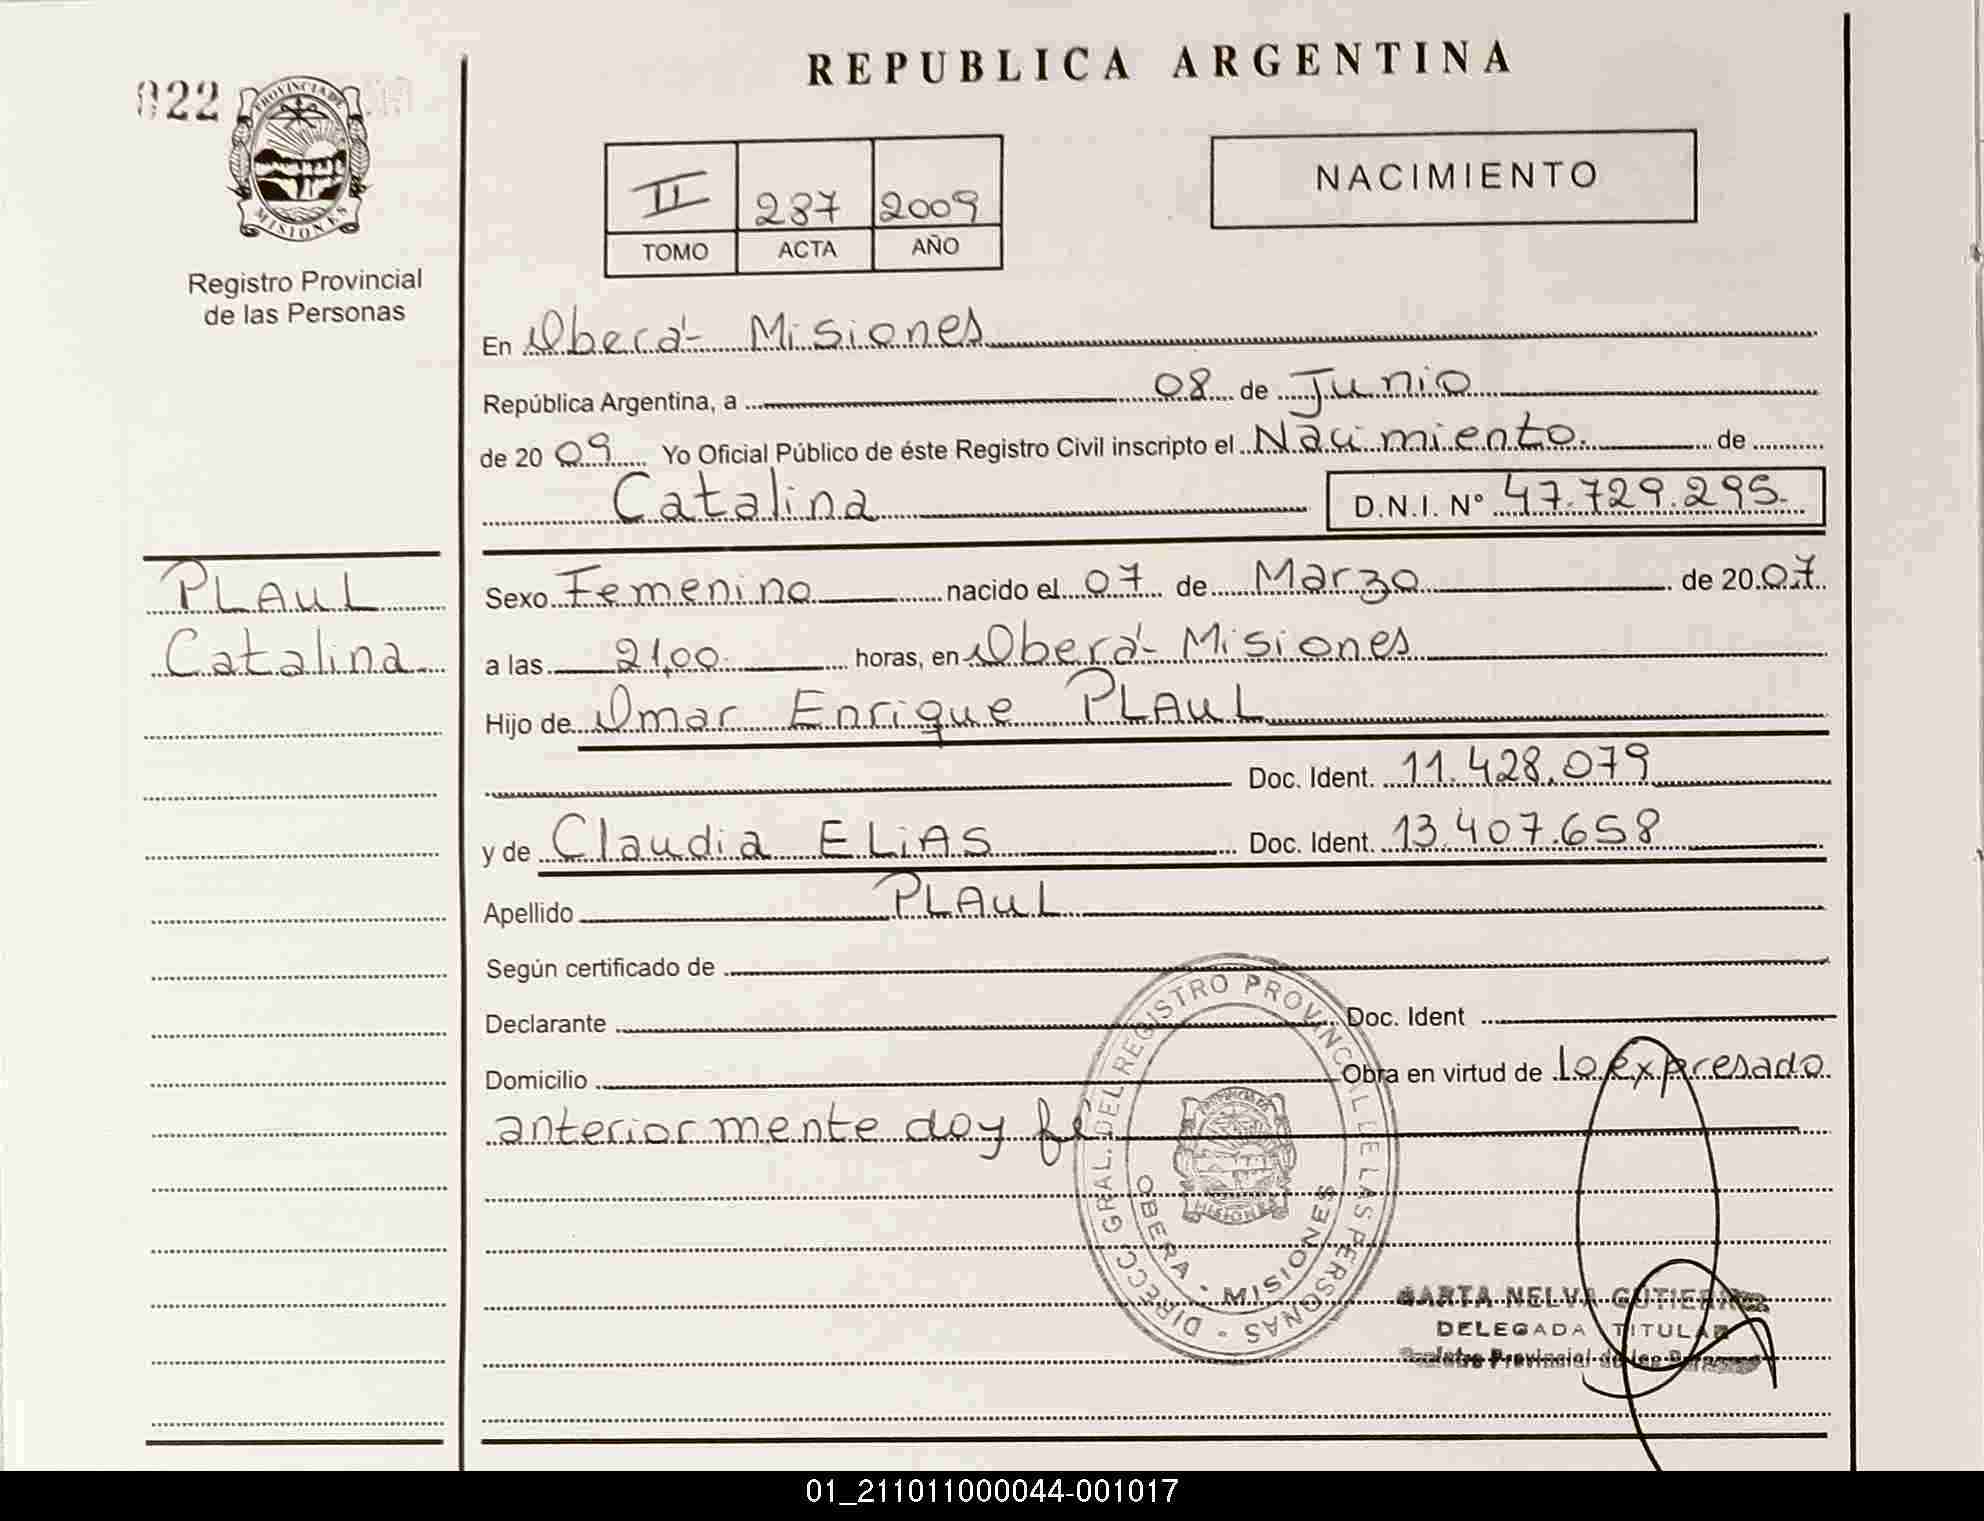 REPUBLICA ARGENTINA
022
PROVINCIA DE
MISIONES
Registro Provincial
de las Personas
II 287 2009
TOMO ACTA AÑO
NACIMIENTO
En Oberá - Misiones
República Argentina, a 08 de Junio
de 2009 Yo Oficial Público de éste Registro Civil inscripto el Nacimiento. de
Catalina D.N.I. N° 47.729.295.
PLAUL
Catalina
Sexo Femenino nacido el 07 de Marzo de 2007
a las 21,00 horas, en Oberá - Misiones
Hijo de Omar Enrique PLAUL
Doc. Ident. 11.428.079
y de Claudia ELiAS Doc. Ident. 13.407.658
Apellido PLAUL
Según certificado de
Declarante Doc. Ident
Domicilio Obra en virtud de lo expresado
anteriormente doy fé.
DIRECC. GRAL. DEL REGISTRO PROVINCIAL DE LAS PERSONAS -
PROVINCIA DE
MISIONES
OBERA - MISIONES
NELVA GUTIERREZ
DELEGADA TITULAR
Registro Provincial de las Personas
01_211011000044-001017